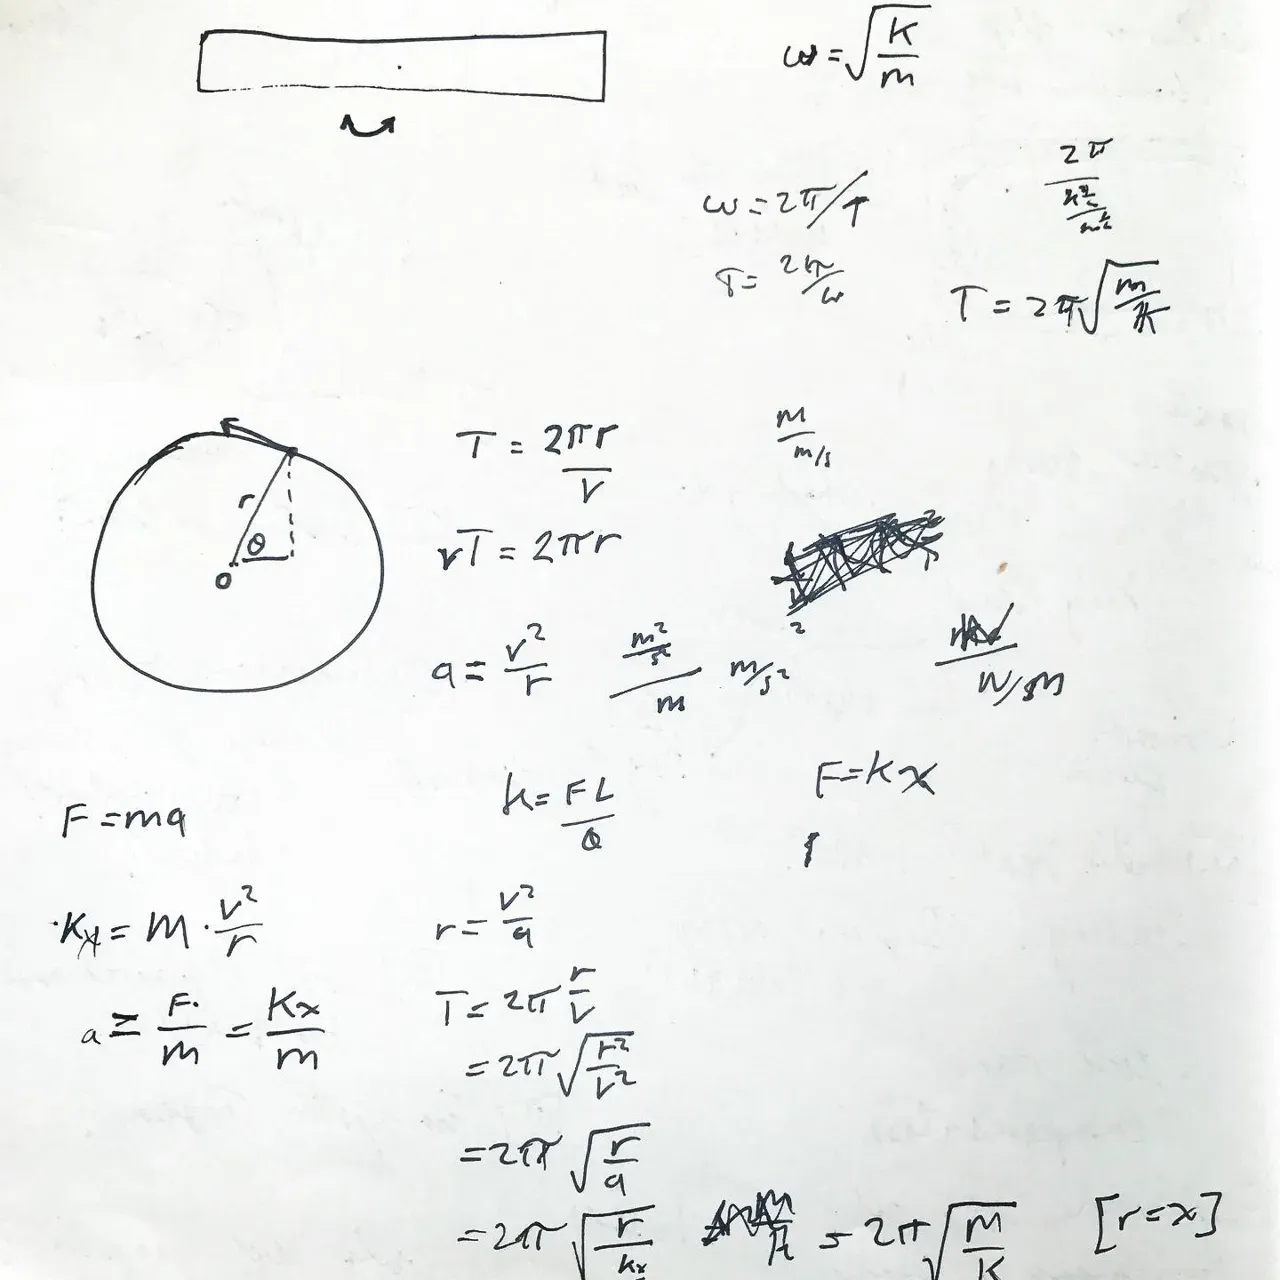 ω = √(k/m)
2π
ω = 2π/T
T = 2π/ω
T = 2π√(m/k)
T = 2πr/v
m/(m/s)
r
θ
O
vT = 2πr
2
a = v²/r
(m²/s²)/m
m/s²
F = kx
k = FL/θ
F = ma
kx = m · v²/r
r = v²/a
a = F/m = kx/m
T = 2π r/v
= 2π√(r²/v²)
= 2π√(r/a)
= 2π√(r/(kx
= 2π√(m/k)
[r = x]